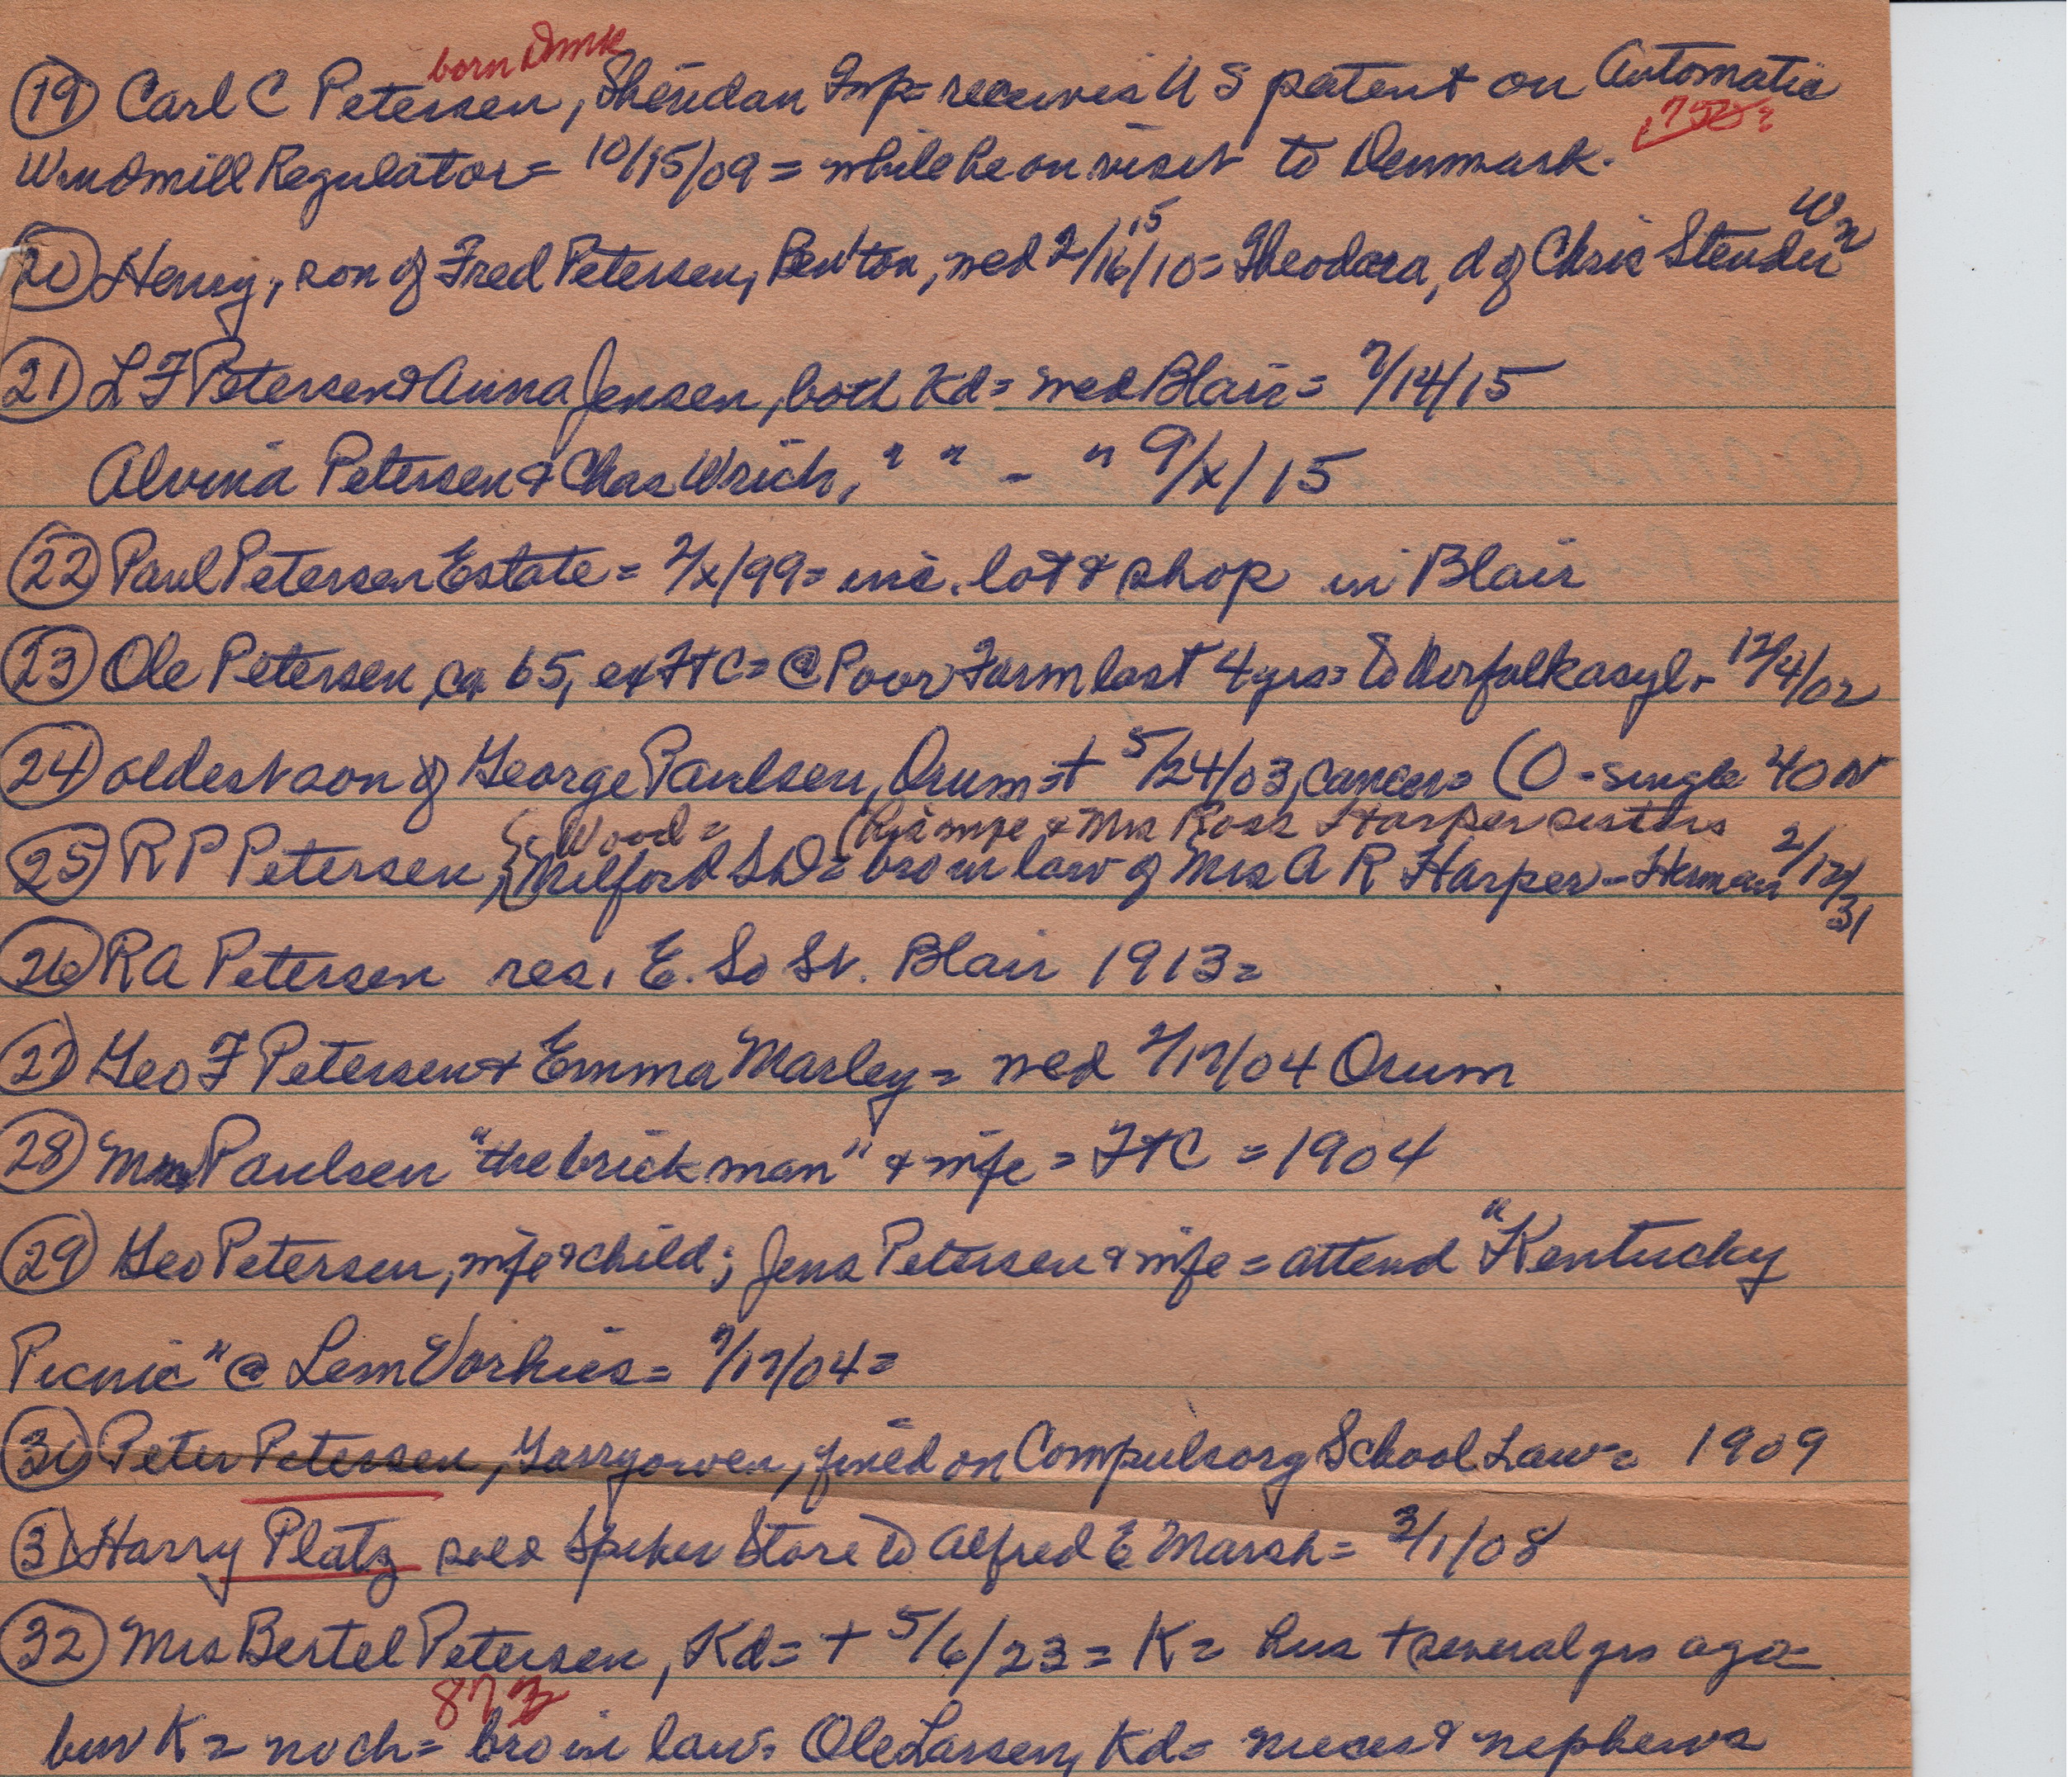 born Dmk
(19) Carl C Petersen, Sheridan Twp = receives U S patent on Automatic
Windmill Regulator = 10/15/09 = while he on visit to Denmark.
15 Wn
(20) Henry, son of Fred Petersen, Benton, wed 2/16/10 = Theodora, d of Chris Stender
(21) L F Petersen & Anna Jensen, both Kd = wed Blair = 7/14/15
Alvina Petersen & Chas Wrich, " " - " 9/x/15
(22) Paul Petersen Estate = 2/x/99 = inc. lot & shop in Blair
(23) Ole Petersen, ca 65, ex FtC = @ Poor Farm last 4 yrs = to Norfolk asyl - 12/4/02
(24) oldest son of George Paulsen, Orum = + 5/24/03, cancer = (O - single 40
Wood = (his wife & Mrs Ross Harper sisters
(25) R P Petersen, Milford SD = bro in law of Mrs A R Harper - Herman 2/12/31
(26) R A Petersen res. E. So St. Blair 1913 =
(27) Geo F Petersen & Emma Marley = wed 2/17/04 Orum
(28) Paulsen "the brick man" & wife = FtC = 1904
(29) Geo Petersen, wife & child; Jens Petersen & wife = attend "Kentucky
Picnic" @ Lem Vorhies = 7/17/04 =
(30) Peter Petersen, Garryowen, fined on Compulsory School Law = 1909
(31) Harry Platz sold Spiker Store to Alfred E Marsh = 3/1/08
(32) Mrs Bertel Petersen, Kd = + 5/6/23 = K = hus + several yrs ago =
87
bur K = no ch = bro in law = Ole Larsen, Kd = nieces & nephews